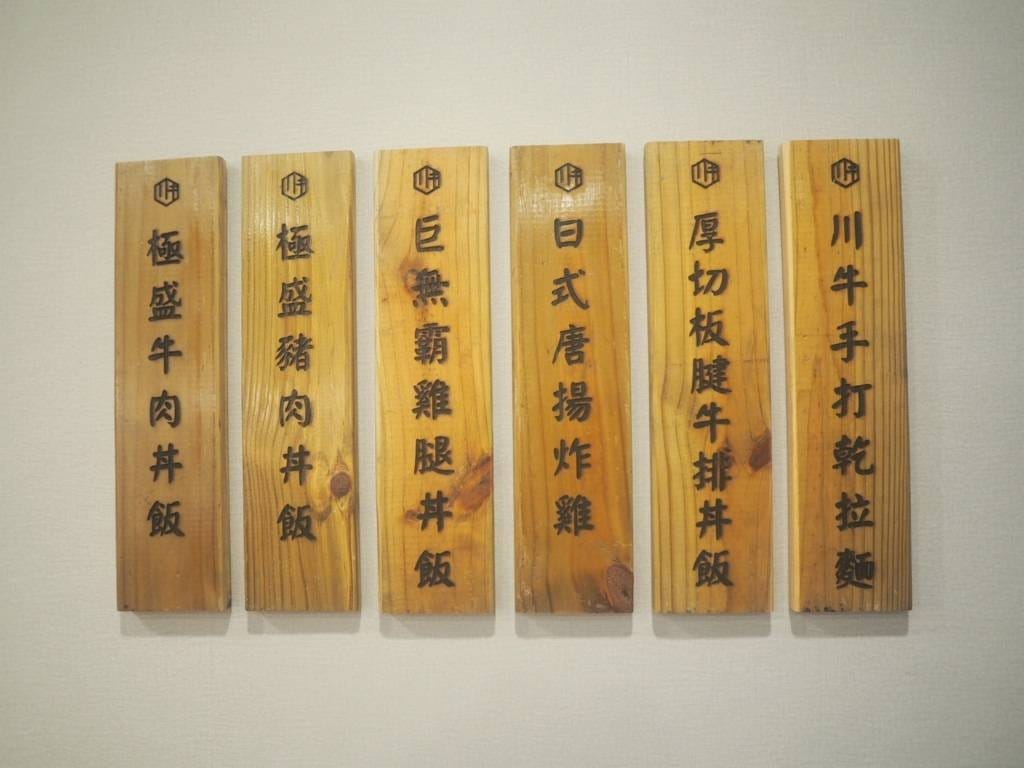 川牛手打乾拉麵
厚切板腱牛排丼飯
日式唐揚炸雞
巨無霸雞腿丼飯
極盛豬肉丼飯
極盛牛肉丼飯